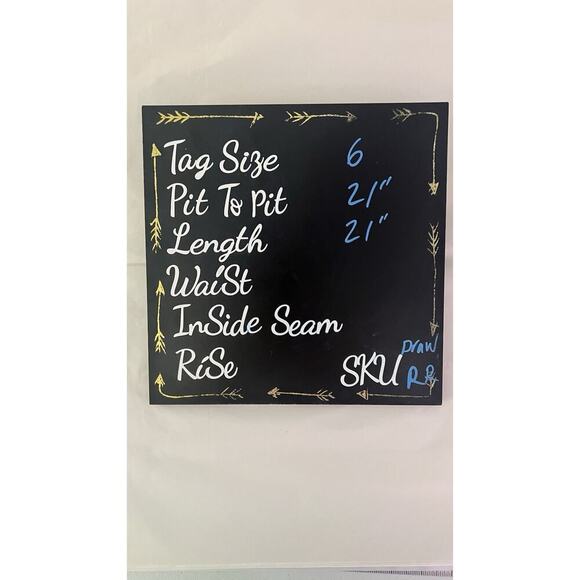 Tag Size 6
Pit To Pit 21"
Length 21"
WaiSt
InSide Seam
RiSe SKU Draw
RR